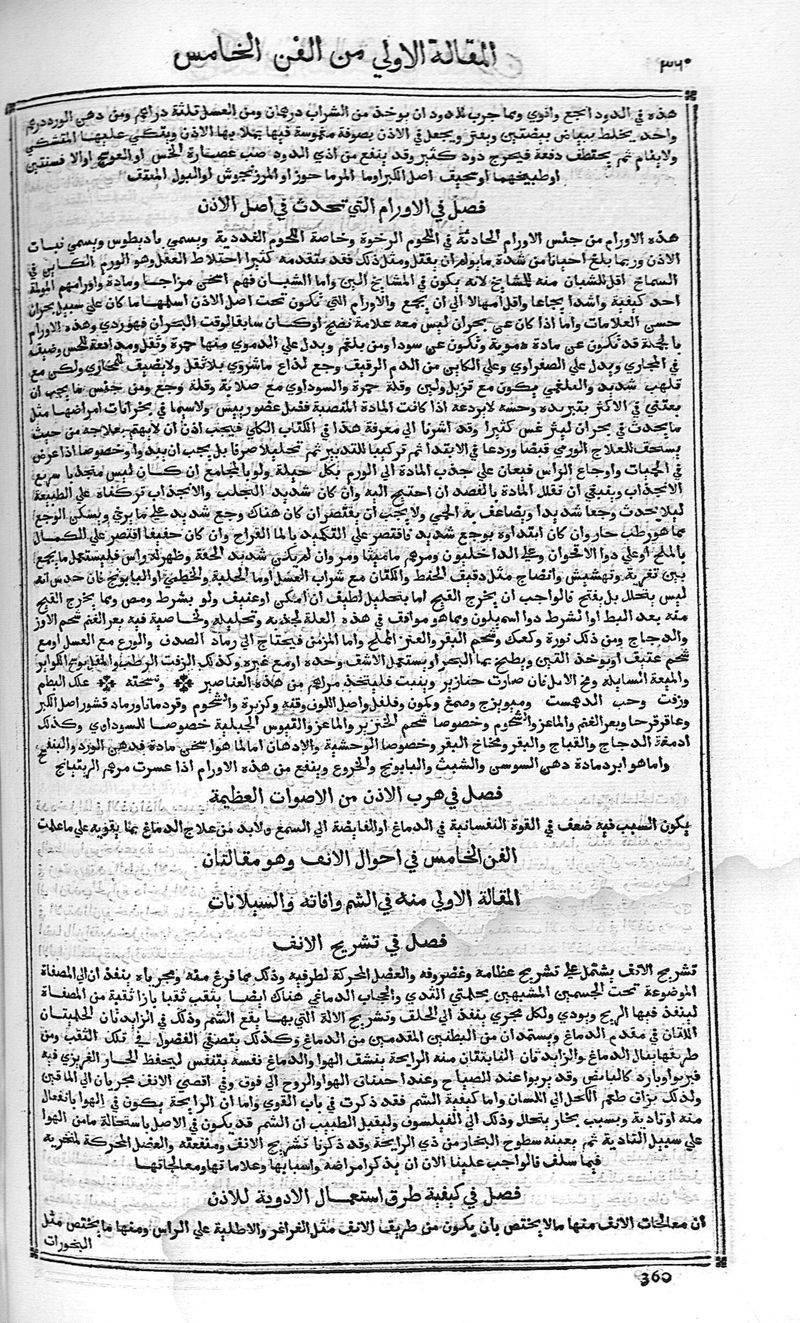 ٣٦٠ المقالة الاولي من الفن الخامس
هذه في الدود انجع واقوي ومما جرب للدود ان يوخذ من الشراب درهمان ومن العسل ثلثة دراهم ومن دهن الورد درهم
واحد يخلط ببياض بيضتين ويفتر ويجعل في الاذن بصوفة مغموسة فيها يملا بها الاذن ويتكي عليها المتشكي
ولا ينام ثم يختطف دفعة فيخرج دود كثير وقد ينفع من اذي الدود صب عصارة الخس او العوسج او الافسنتين
او طبيخهما او سحيق اصل الكبر او ما المرماحوز او المرزنجوش او البول المعتق
فصل في الاورام التي تحدث في اصل الاذن
هذه الاورام من جنس الاورام الحادثة في اللحوم الرخوة وخاصة اللحوم الغددية ويسمي باريطوس ويسمي نبات
الاذن وربما بلغ احيانا من شدة ما يولم ان يقتل ومثل ذلك فقد يتقدمه كثيرا اختلاط العقل وهو الورم الكاين في
السماخ اقل للشبان منه للمشايخ لانه يكون في المشايخ الين واما الشبان فهم اسخن مزاجا ومادة واورامهم المولمة
احد كيفية واشد ايجاعا واقل امهالا الي ان يجمع والاورام التي تكون تحت اصل الاذن اسلمها ما كان علي سبيل بحران
حسن العلامات واما اذا كان عن بحران ليس معه علامة نضج او كان سابقا لوقت البحران فهو ردي وهذه الاورام
بالجملة قد تكون عن مادة دموية وتكون عن سودا ومن بلغم ويدل علي الدموي منها حمرة وثقل ومدافعة للحس وضيق
في المجاري ويدل علي الصفراوي وعلي الكاين من الدم الرقيق وجع لذاع ماشروي بلا ثقل ولا يضيق للمجاري ولكن مع
تلهب شديد والبلغمي يكون مع تزبل ولين وقلة حمرة والسوداوي مع صلابة وقلة وجع ومن جنس ما يجب ان
يعتني في الاكثر بتبريده وحسه لا بردعه اذا كانت المادة المنصبة فضل عضو رييس ولا سيما في بحرانات امراضها مثل
ما يحدث في بحران ليثرغس كثيرا وقد اشرنا الي معرفة هذا في الكتاب الكلي فيجب اذن ان لا يهتم بعلاجه من حيث
يستحق العلاج الورمي قبضا وردعا في الابتدا ثم تركيبا للتدبير ثم تحليلا صرفا بل يجب ان يبدوا وخصوصا اذا عرض
في الحميات واوجاع الراس فيعان علي جذب المادة الي الورم بكل حيلة ولو بالمحاجم ان كان ليس منجذبا سريع
الانجذاب وينبغي ان تقلل المادة بالفصد ان احتيج اليه وان كان شديد التجلب والانجذاب تركناه علي الطبيعة
ليلا يحدث وجعا شديدا ويضاعف به الحمي ولا يجب ان يقتصر ان كان هناك وجع شديد علي ما يرخي ويسكن الوجع
مما هو رطب حار وان كان ابتداوه بوجع شديد فاقتصر علي التكميد بالما القراح وان كان خفيفا اقتصر علي الكماد
بالملح او علي دوا الاقحوان وعلي الداخليون ومرهم ماميثا ومر وان لم يكن شديد الخفة وظهر له راس فليستعمل ما يجمع
بين تغرية وتهشيش وانضاج مثل دقيق الحنطة والكتان مع شراب العسل او ما الحلبة والخطمي او البابونج فان حدس انه
ليس يتحلل بل يتقيح فالواجب ان يخرج القيح اما بتحليل لطيف ان امكن او عنيف ولو بشرط ومص ومما يخرج القيح
منه بعد البط او الشرط دوا اسميلون ومما هو موافق في هذه العلة لجذبه وتحليله ولخاصية فيه بعر الغنم بشحم الاوز
والدجاج ومن ذلك نورة وكعك وشحم البقر والعنز المملح واما المزمن فيحتاج الي رماد الصدف والودع مع العسل او مع
شحم عتيق او يوخذ التين ويطبخ بما البحر او يستعمل الاشق وحده او مع غيره وكذلك الزفت الرطب والمقل بوسخ الكواير
والميعة السايلة ومخ الايل فان صارت خنازير وبقيت فليتخذ مراهم من هذه العناصر ونسخته علك البطم
وزفت وحب الدهمست وميويزج وصمغ وكمون وفلفل واصل اللوف وقنه وكزبرة والشحوم وقردمانا ورماد قشور اصل الكبر
وعاقرقرحا وبعر الغنم والماعز والشحوم وخصوصا شحم الخنزير والماعز والتيوس الجبلية خصوصا للسوداوي وكذلك
ادمغة الدجاج والقباج والبقر ومخاخ البقر وخصوصا الوحشية والادهان اما لما هو اسخن مادة فدهن الورد والبنفسج
واما هو ابرد مادة دهن السوسن والشبث والبابونج والخروع وينفع من هذه الاورام اذا عسرت مرهم الريتيانج
فصل في هرب الاذن من الاصوات العظيمة
يكون السبب فيه ضعف في القوة النفسانية في الدماغ او الفايضة الي السمع ولا بد من علاج الدماغ بما يقويه علي ما علمت
الفن الخامس في احوال الانف وهو مقالتان
المقالة الاولي منه في الشم وافاته والسيلانات
فصل في تشريح الانف
تشريح الانف يشتمل علي تشريح عظامه وغضروفه والعضل المحركة لطرفيه وذلك مما فرغ منه ومجرياه ينفذان الي المصفاة
الموضوعة تحت الجسمين المشبهين بحلمتي الثدي والحجاب الدماغي هناك ايضا يثقب ثقبا بازا ثقبة من المصفاة
لينفذ فيها الريح ويودي ولكل مجري ينفذ الي الحلق وتشريح الالة التي بها يقع الشم وذلك في الزايدتان الحلميتان
اللتان في مقدم الدماغ ويستمدان من البطنين المقدمين من الدماغ وكذلك يتصفي الفضول في تلك الثقب ومن
طريقها ينال الدماغ والزايدتان النابتتان منه الرايحة بنشق الهوا والدماغ نفسه يتنفس ليحفظ الحار الغريزي فيه
فيربوا ويارز كالنابض وقد يربوا عند الصياح وعند احتقان الهوا والروح الي فوق وفي اقصي الانف مجريان الي الماقين
ولذلك يذاق طعم الكحل الي اللسان واما كيفية الشم فقد ذكرت في باب القوي واما ان الرايحة يكون في الهوا بانفعال
منه او تادية وبسبب بخار يتحلل وذلك الي الفيلسوف وليقبل الطبيب ان الشم قد يكون في الاصل باستحالة ما من الهوا
علي سبيل التادية ثم يعينه سطوح البخار من ذي الرايحة وقد ذكرنا تشريح الانف ومنفعته والعضل المحركة لمنخريه
فيما سلف فالواجب علينا الان ان نذكر امراضه واسبابها وعلاماتها ومعالجاتها
فصل في كيفية طرق استعمال الادوية للاذن
ان معالجات الانف منها ما لا يختص بان يكون من طريق الانف مثل الغراغر والاطلية علي الراس ومنها ما يختص مثل
البخورات
360